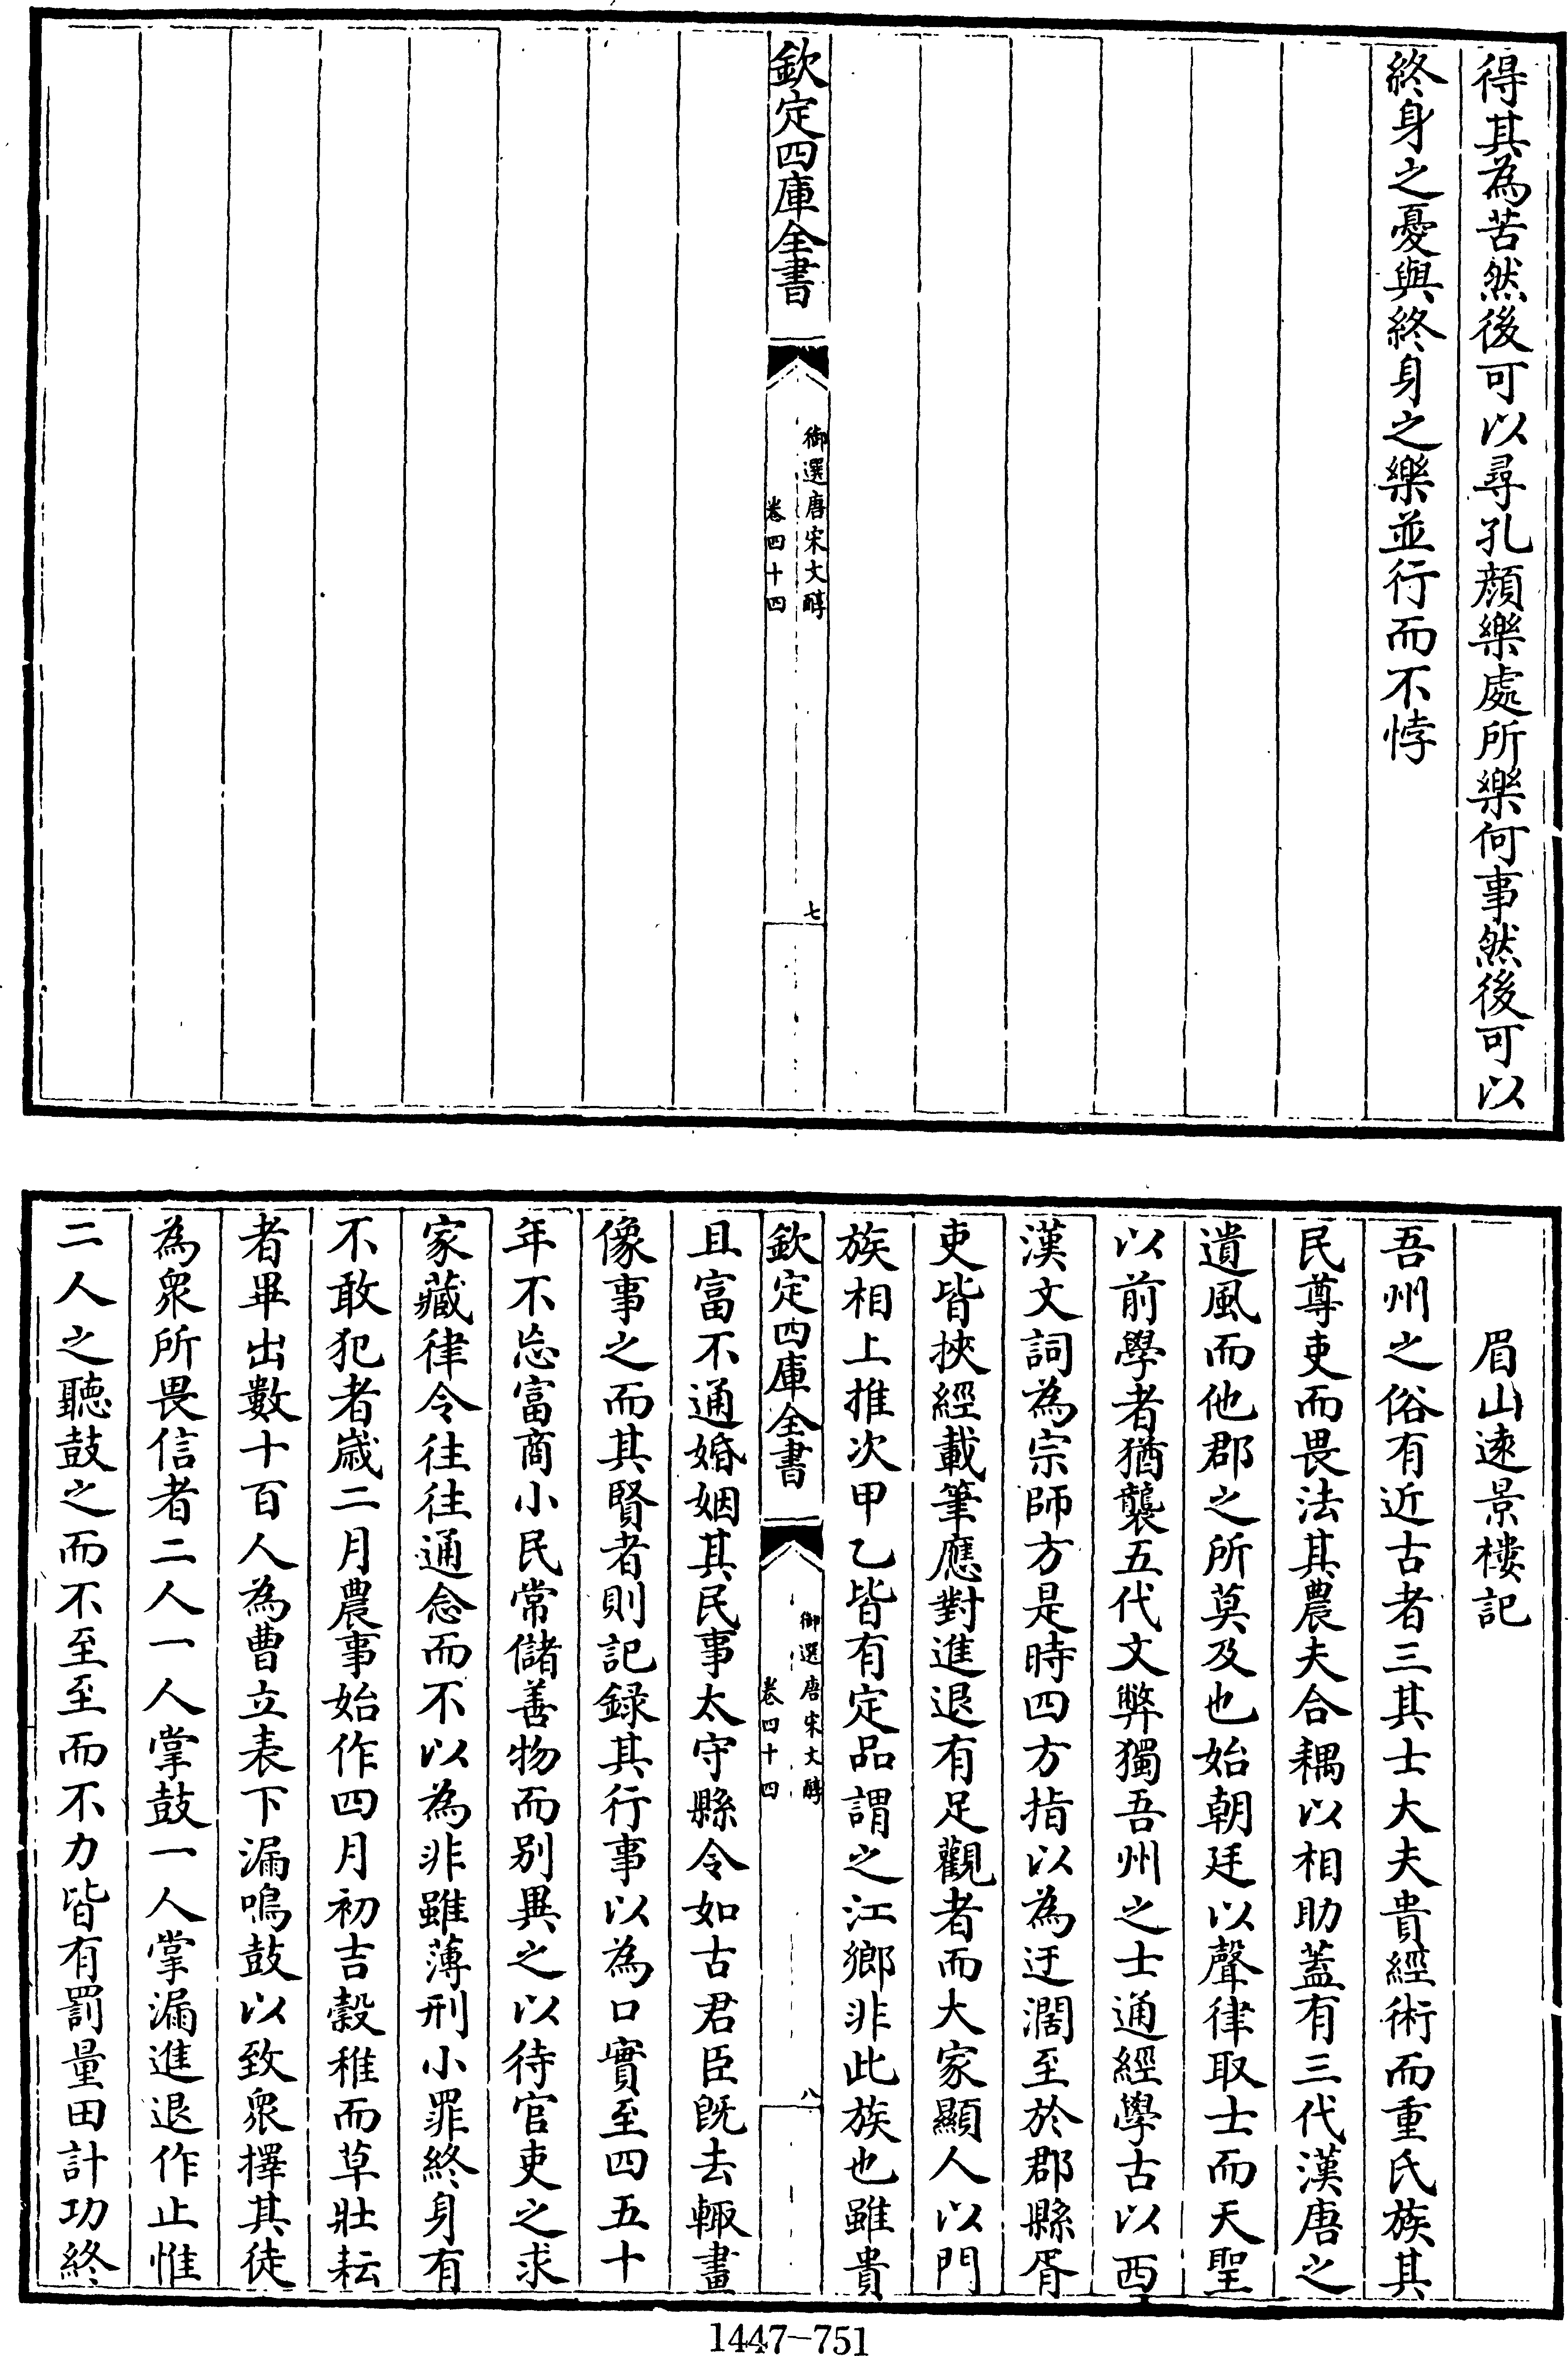 得其為苦然後可以尋孔顔樂處所樂何事然後可以
終身之憂與終身之樂並行而不悖
欽定四庫全書
御選唐宋文醇
卷四十四
七
眉山遠景樓記
吾州之俗有近古者三其士大夫貴經術而重氏族其
民尊吏而畏法其農夫合耦以相助蓋有三代漢唐之
遺風而他郡之所莫及也始朝廷以聲律取士而天聖
以前學者猶襲五代文弊獨吾州之士通經學古以西
漢文詞為宗師方是時四方指以為迂濶至於郡縣胥
吏皆挾經載筆應對進退有足觀者而大家顯人以門
族相上推次甲乙皆有定品謂之江鄉非此族也雖貴
欽定四庫全書
御選唐宋文醇
卷四十四
八
且富不通婚姻其民事太守縣令如古君臣旣去輙畫
像事之而其賢者則記録其行事以為口實至四五十
年不忘富商小民常儲善物而别異之以待官吏之求
家藏律令往往通念而不以為非雖薄刑小罪終身有
不敢犯者歳二月農事始作四月初吉穀稚而草壯耘
者畢出數十百人為曹立表下漏鳴鼓以致衆擇其徒
為衆所畏信者二人一人掌鼓一人掌漏進退作止惟
二人之聽鼓之而不至至而不力皆有罰量田計功終
1447-751